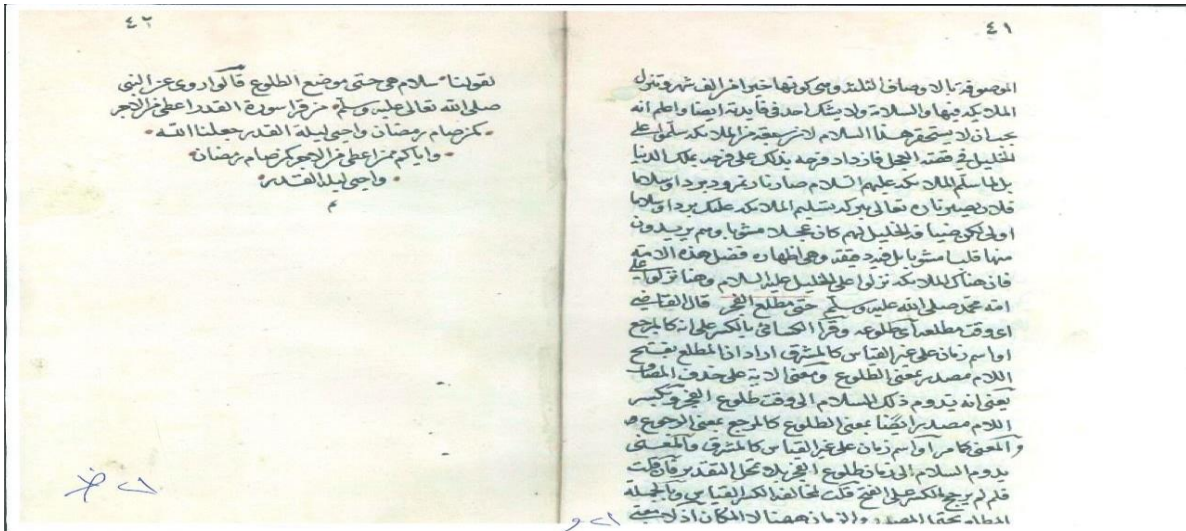 ٤١
الموصوفة بالاوصاف الثلثة وهي كونها خير من الف شهر وتنزل
الملائكة فيها والسلامة ولا يشك احد في فايدته ايضا واعلم انه
يجب ان لا يستحقر هذا السلام لان سبعة من الملائكة سلموا على
الخليل في قصة العجل فازداد فرحه بذلك على فرحه بملك الدنيا
بل لما سلم الملائكة عليهم السلام صار نار نمرود بردا وسلاما
فلان يصير ناره تعالى ببركة تسليم الملائكة عليك بردا وسلاما
اولى لكن ضيافة الخليل لهم كان عجلا مشويا وهم يريدون
منها قلبا مشويا بل فيه دقيقة وهي اظهار فضل هذه الامة
فان هناك الملائكة نزلوا على الخليل عليه السلام وهنا نزلوا على
امة محمد صلى الله عليه وسلم حتى مطلع الفجر قال القاضي
اى وقت مطلعه اى طلوعه وقرا الكسائي بالكسر على انه كالمرجع
او اسم زمان على غير القياس كالمشرق اراد ان المطلع بفتح
اللام مصدر بمعنى الطلوع ومعنى الاية على حذف المضاف
يعنى انه يدوم ذلك السلام الى وقت طلوع الفجر وبكسر
اللام مصدر ايضا بمعنى الطلوع كالمرجع بمعنى الرجوع
والمعنى كما مر او اسم زمان على غير القياس كالمشرق والمعنى
يدوم السلام الى زمان طلوع الفجر بلا تحمل التقدير فان قلت
فلم لم يرجح الكسر على الفتح قلت لمخالفة الكسر القياس وبالجملة
المطلع يحتمل المصدر والزمان ههنا لا المكان اذ لا معنى
٤٢
لقولنا سلام هي حتى موضع الطلوع قالوا روى عن النبي
صلى الله تعالى عليه وسلم من قرا سورة القدر اعطى من الاجر
كمن صام رمضان واحيى ليلة القدر جعلنا الله
واياكم ممن اعطى من الاجر كمن صام رمضان
واحيى ليلة القدر
م